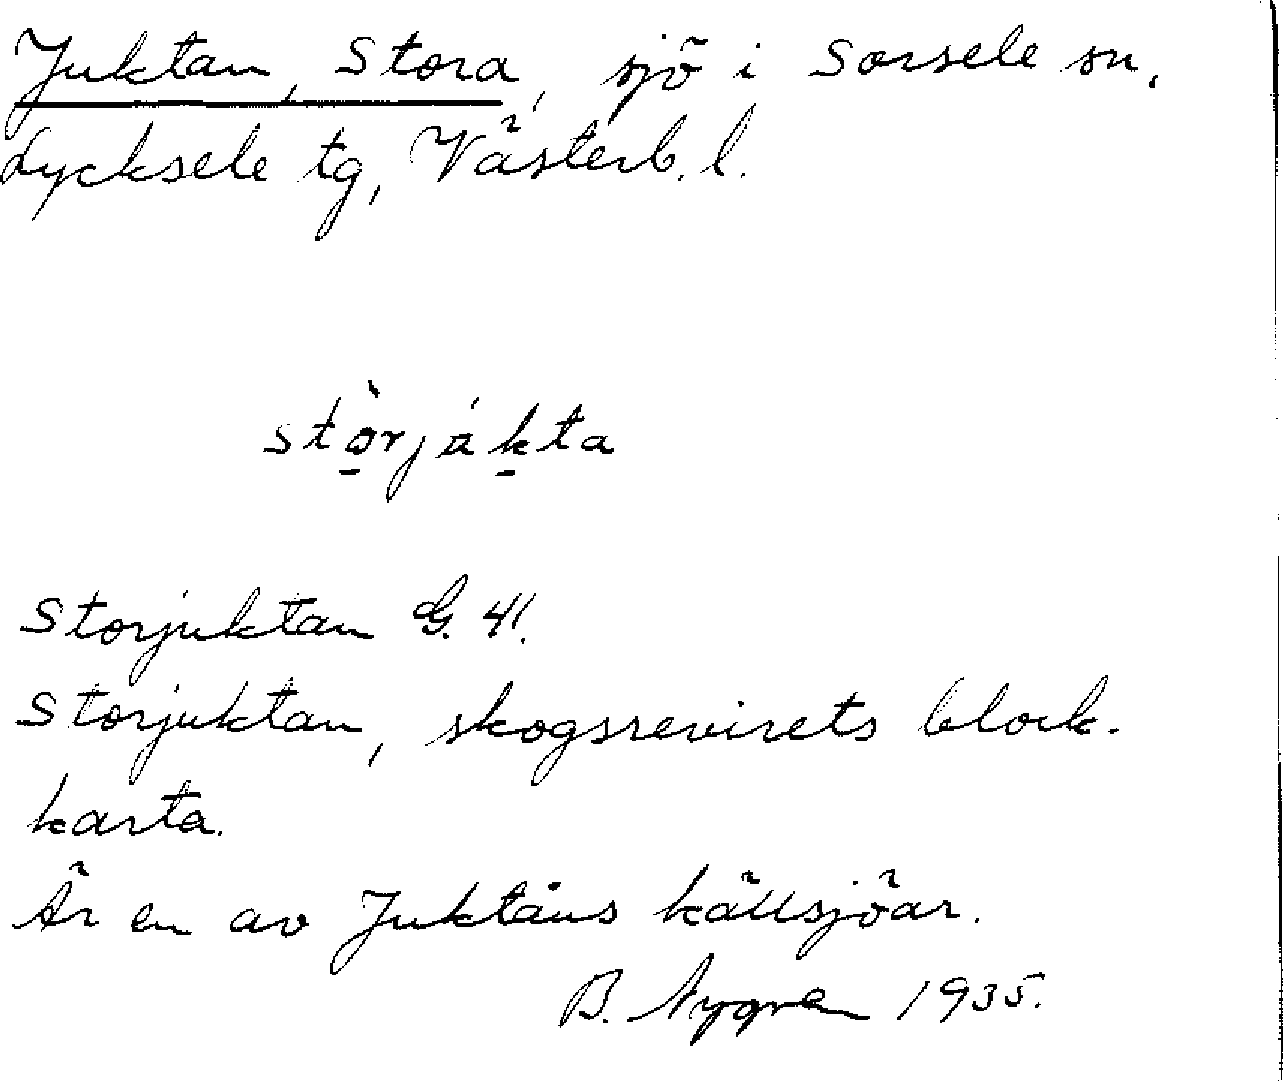 Juktan, Stora, sjö i Sorsele sn,
Lycksele tg, Västerb. l.
stò̠rják̠ta
Storjuktan G. 41.
Storjuktan, skogsrevirets block-
karta.
Är en av Juktåns källsjöar.
B. Nygren 1935.